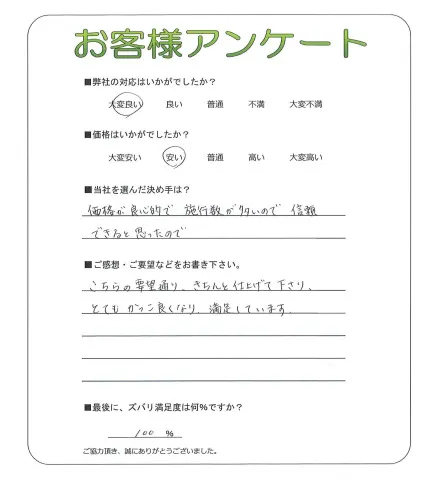 お客様アンケート
■弊社の対応はいかがでしたか？
大変良い 良い 普通 不満 大変不満
■価格はいかがでしたか？
大変安い 安い 普通 高い 大変高い
■当社を選んだ決め手は？
価格が良心的で 施行数が多いので 信頼
できると思ったので
■ご感想・ご要望などをお書き下さい。
こちらの要望通り、きちんと仕上げて下さり、
とても かっこ良くなり、満足しています。
■最後に、ズバリ満足度は何％ですか？
100 %
ご協力頂き、誠にありがとうございました。